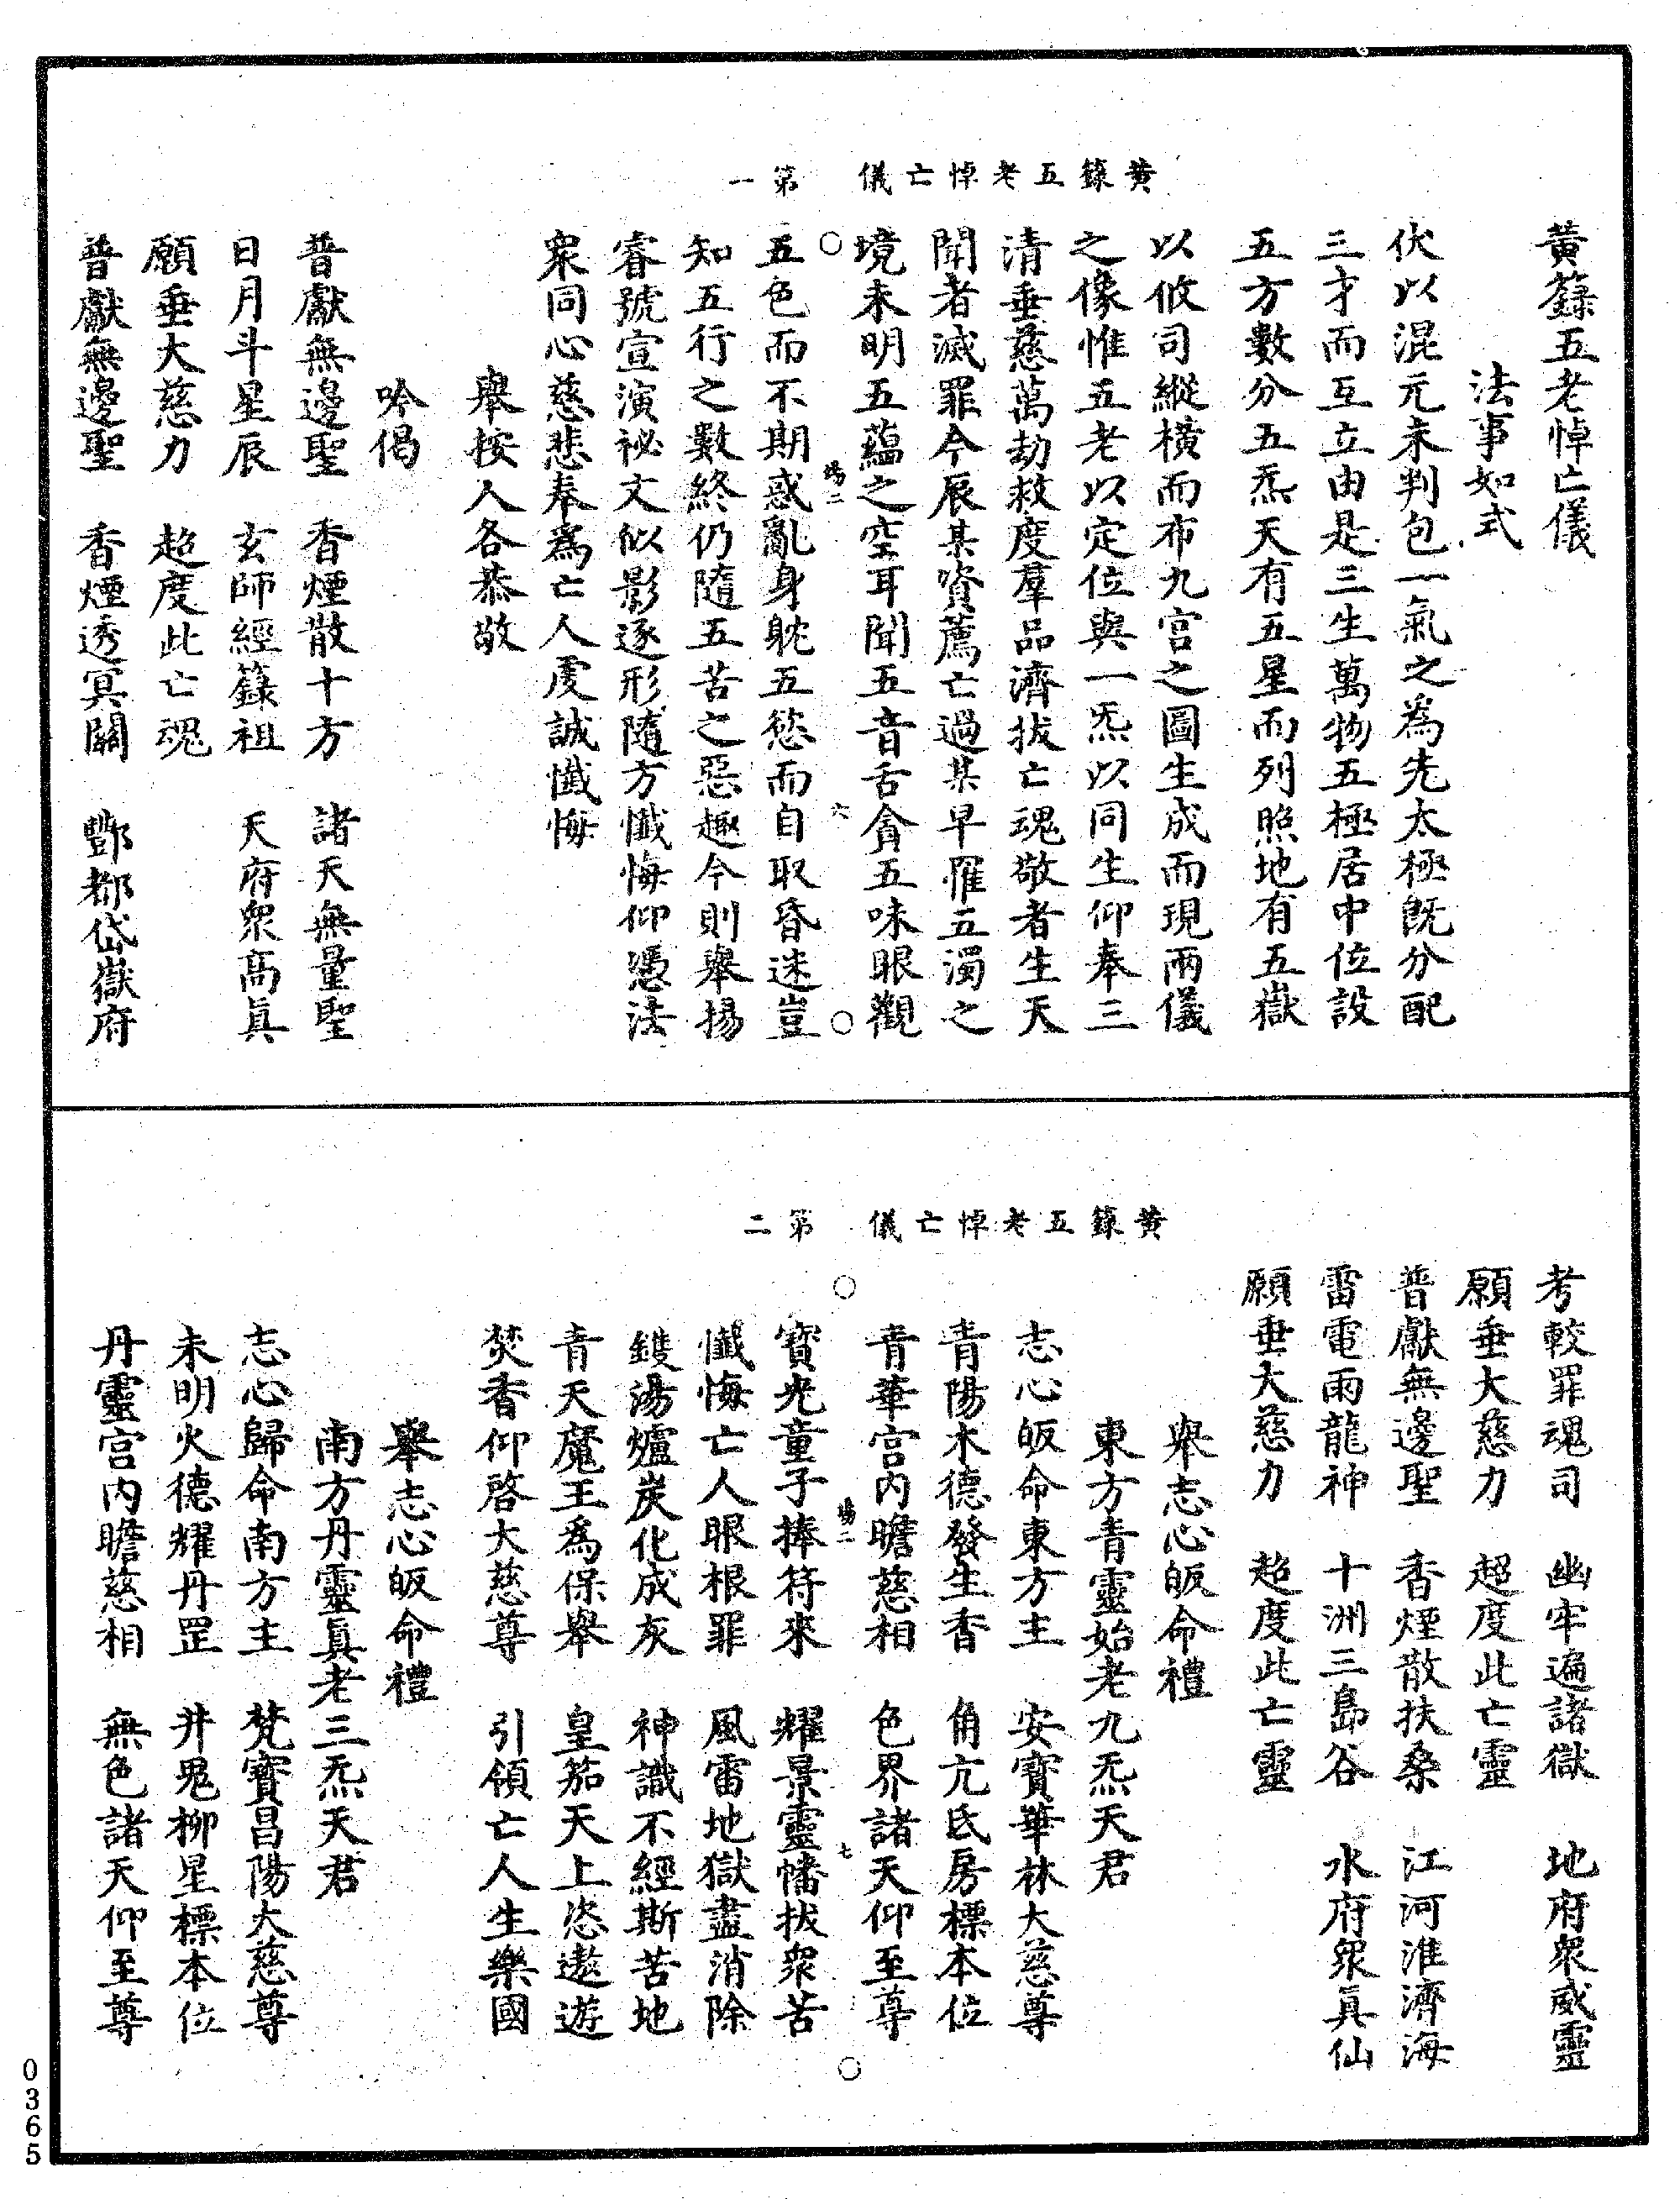 黃籙五老悼亡儀　第一
黃籙五老悼亡儀
法事如式
伏以混元未判包一氣之為先太極既分配
三才而互立由是三生萬物五極居中位設
五方數分五炁天有五星而列照地有五嶽
以攸司縱橫而布九宮之圖生成而現兩儀
之像惟五老以定位與一炁以同生仰奉三
清垂慈萬劫救度羣品濟拔亡魂敬者生天
聞者滅罪今辰某資薦亡過某早罹五濁之
境未明五蘊之空耳聞五音舌貪五味眼觀
場二　六
五色而不期惑亂身躭五慾而自取昏迷豈
知五行之數終仍隨五苦之惡趣今則舉揚
睿號宣演祕文似影逐形隨方懺悔仰憑法
眾同心慈悲奉為亡人虔誠懺悔
舉按人各恭敬
吟偈
普獻無邊聖　香煙散十方　諸天無量聖
日月斗星辰　玄師經籙祖　天府眾高真
願垂大慈力　超度此亡魂
普獻無邊聖　香煙透冥關　酆都岱嶽府
黃籙五老悼亡儀　第二
考較罪魂司　幽牢遍諸獄　地府眾威靈
願垂大慈力　超度此亡靈
普獻無邊聖　香煙散扶桑　江河淮濟海
雷電雨龍神　十洲三島谷　水府眾真仙
願垂大慈力　超度此亡靈
舉志心皈命禮
東方青靈始老九炁天君
志心皈命東方主　安寶華林大慈尊
青陽木德發生香　角亢氐房標本位
青華宮內瞻慈相　色界諸天仰至尊
場二　七
寶光童子捧符來　耀景靈幡拔眾苦
懺悔亡人眼根罪　風雷地獄盡消除
鑊湯爐炭化成灰　神識不經斯苦地
青天魔王為保舉　皇笳天上恣遨遊
焚香仰啓大慈尊　引領亡人生樂國
舉志心皈命禮
南方丹靈真老三炁天君
志心歸命南方主　梵寶昌陽大慈尊
未明火德耀丹罡　井鬼柳星標本位
丹靈宮內瞻慈相　無色諸天仰至尊
0365